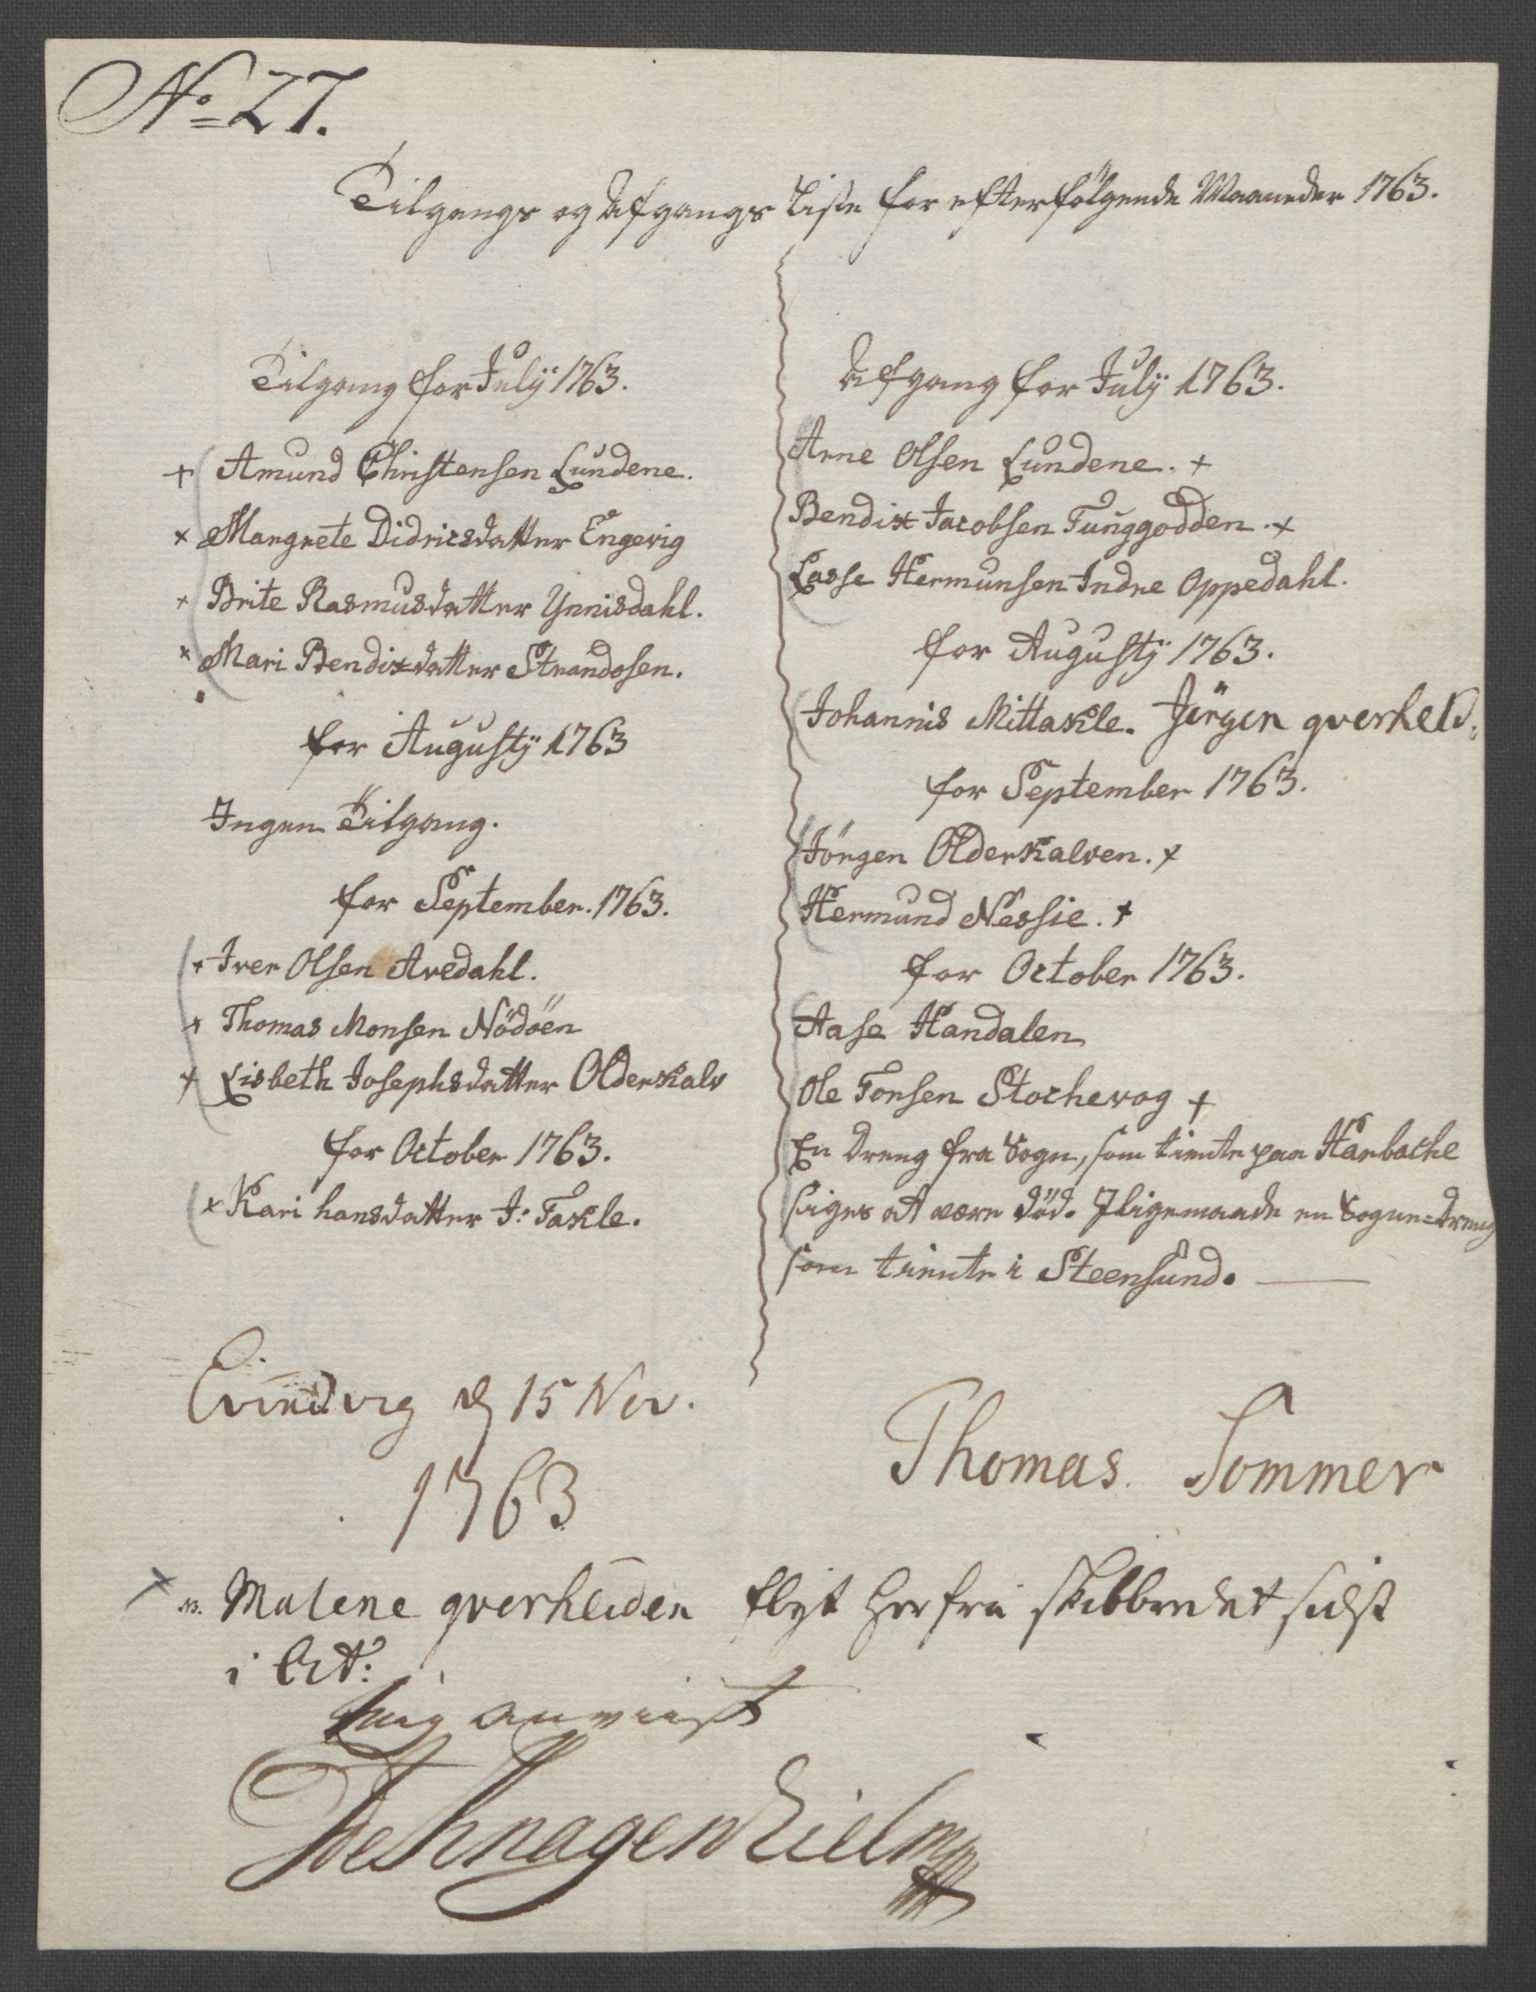 No 27.
Tilgangs og Afgangs Liste for efterfölgende Maaneder 1763.
Tilgang for Julÿ 1763.
+ Amund Christensen Lundene.
× Margrete Didricsdatter Engevig
× Brite Rasmusdatter Ynnisdahl.
× Mari Bendixdatter Strandosen.
for Augustÿ 1763
Ingen Tilgang.
for September. 1763.
× Iver Olsen Avedahl.
× Thomas Monsen Nödöen
× Lisbeth Josephsdatter Olderkalv
for October 1763.
× Kari hansdatter I: Takle.
Afgang for Julÿ 1763.
Arne Olsen Lundene. +
Bendix Jacobsen Tunggodden. ×
Lasse Hermunsen Indre Oppedahl.
for Augustÿ 1763.
Johannis Mittakle. Jörgen qverheid.
for September 1763.
Jörgen Olderkalven. ×
Hermund Nessie. ×
for October 1763.
Aase Handalen
Ole Tonsen Stochevog +
En dreng fra Sogn, som tiente paa Haebache
siges at være död. Iligemaade en Sogne=dreng
som tiente i Steensund.
Evindvig d 15 Nov.
1763
Thomas Sommer
× Malene qverheiden flyt her fra skibbredet sidst
i Oct:
mig anviist
De Knagenhielm